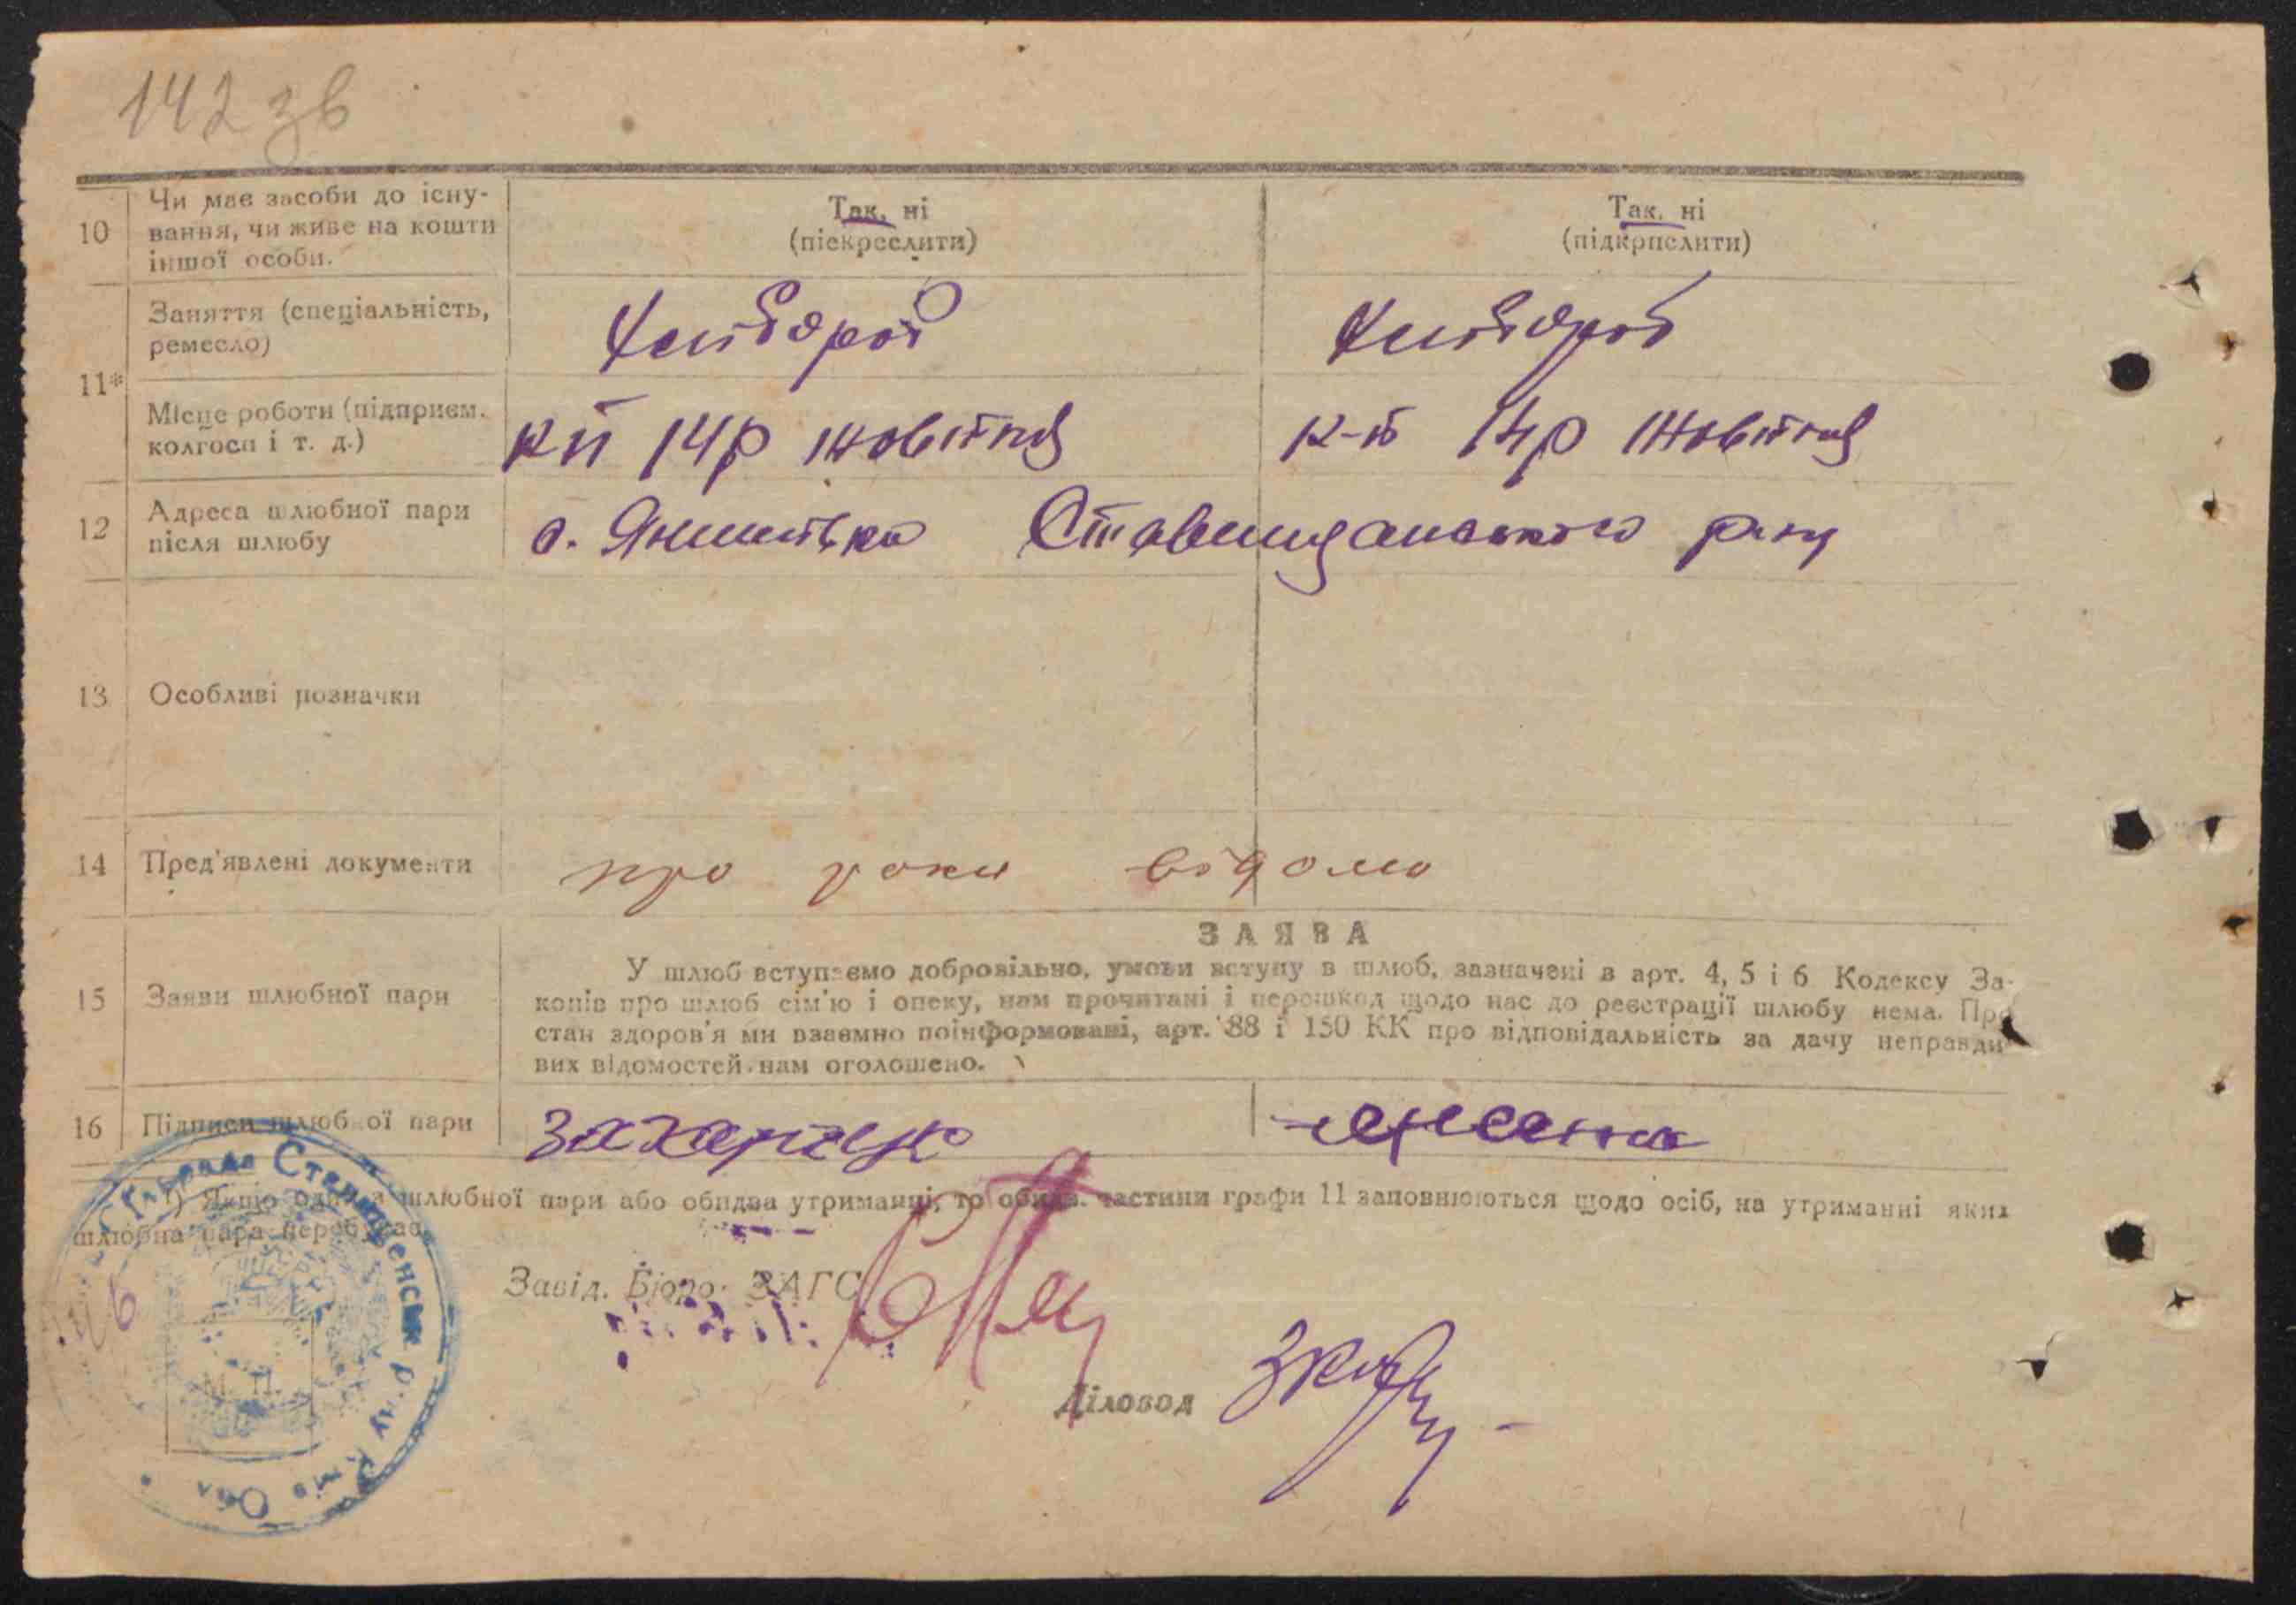 142 зв
10
Чи має засоби до існу-
вання, чи живе на кошти
іншої особи.
Так, ні
(піскреслити)
Так, ні
(підкрпслити)
11*
Заняття (спеціальність,
ремесло)
Хлібороб
Хлібороб
Місце роботи (підприєм.
колгосп і т. д.)
14р жовтня
к-п 14р жовтня
12
Адреса шлюбної пари
після шлюбу
с. Янишівка Ставищанського р-ну
13
Особливі позначки
14
Пред'явлені документи
про роки відомо
15
Заяви шлюбної пари
ЗАЯВА
У шлюб вступаємо добровільно, умови вступу в шлюб, зазначені в арт. 4, 5 і 6 Кодексу За-
конів про шлюб сім'ю і опеку, нам прочитані і перешкод щодо нас до реєстрації шлюбу нема. Про
стан здоров'я ми взаємно поінформовані, арт. 88 і 150 КК про відповідальність за дачу неправди
вих відомостей нам оголошено.
16
Підписи шлюбної пари
*) Якщо один з шлюбної пари або обидва утриманці, то обидв. частини графи 11 заповнюються щодо осіб, на утриманні яких
шлюбна пара перебуває.
Завід. Бюро ЗАГС
Діловод
М. П.